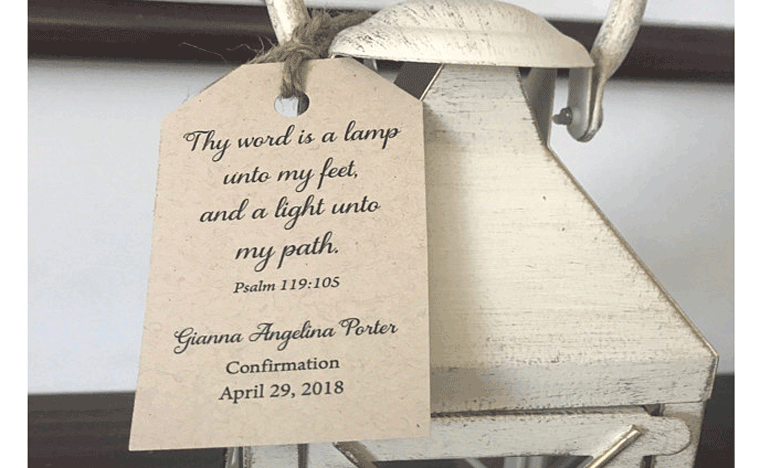 Thy word is a lamp
unto my feet,
and a light unto
my path.
Psalm 119:105
Gianna Angelina Porter
Confirmation
April 29, 2018